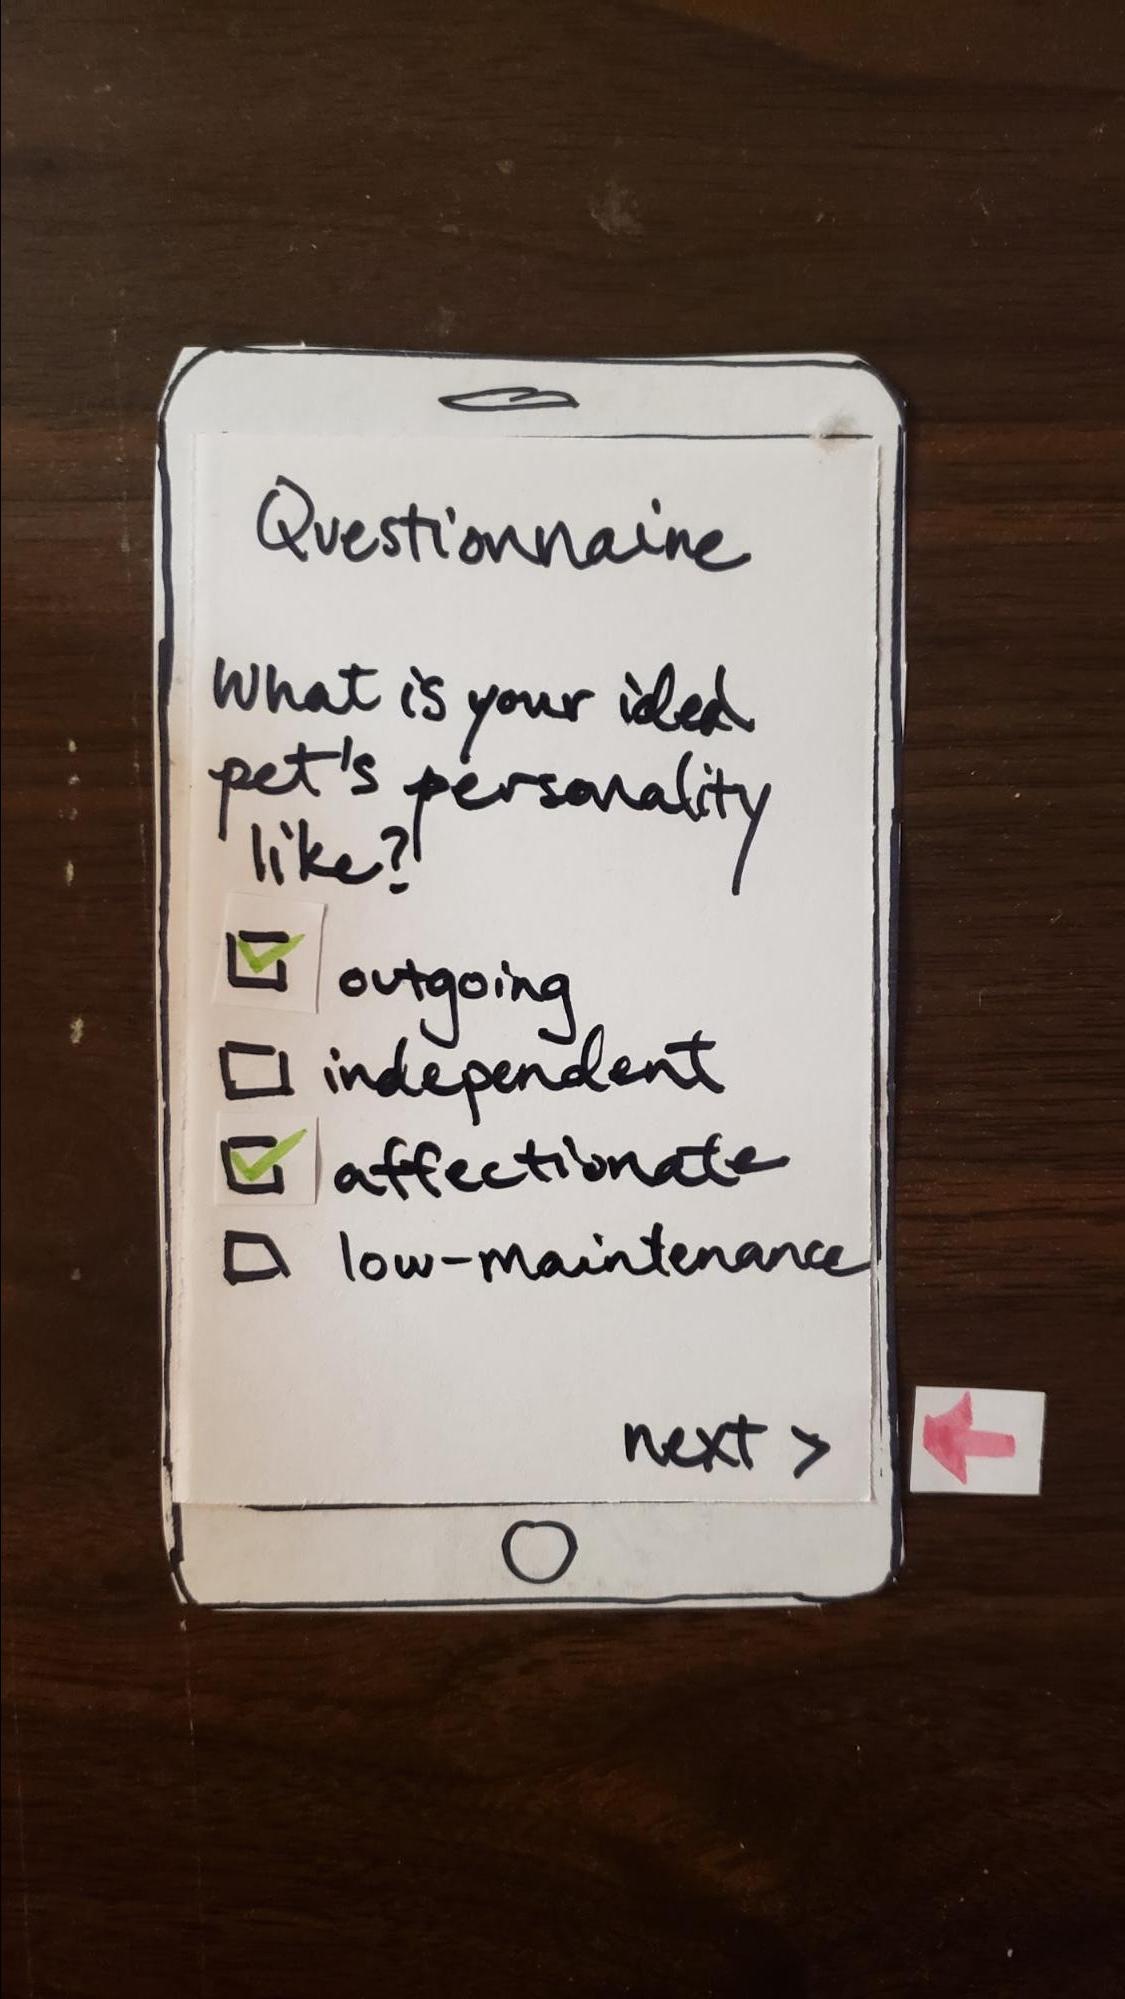 Questionnaire
What is your ideal
pet's personality
like?
outgoing
independent
affectionate
low-maintenance
next >